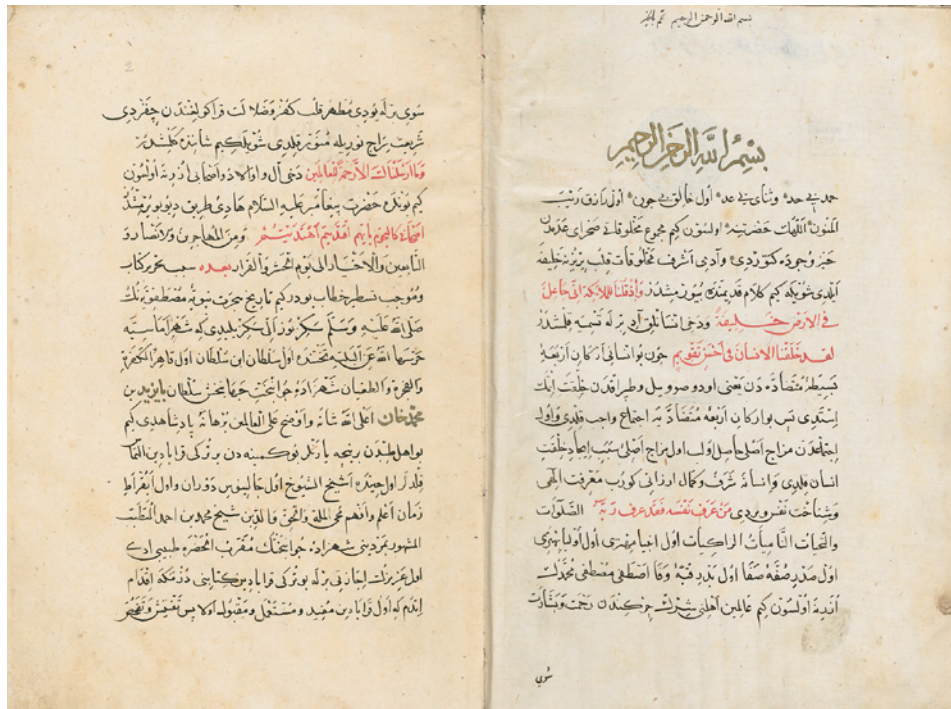 بسم الله الرحمن الرحيم
بسم الله الرحمن الرحيم
حمد بی حد و ثنای بی عد اول خالق بی چون اول رازق
حضرتینه اولسون کیم مجموع مخلوقاتی صحرای عدمدن
وجوده کتوردی و آدمی اشرف مخلوقات قلب یریونه خلیفة
ایلدی شویله کیم کلام قدیمنده بیورمشدر واذ قلنا للملائکة انی جاعل
فی الارض خلیفة ودخی انسانلق آد برله تسمیه قلمشدر
لقد خلقنا الانسان فی احسن تقویم چون بو انسانی ارکان اربعۀ
بسیطۀ متضادّه دن یعنی اود و صو و ییل و طپراقدن خلقت ایتمک
استدی پس بو ارکان اربعۀ متضادّیه اجتماع واجب قلدی و اول
اجتماعدن مزاج اصلی حاصل اولب اول مزاج اصلی سبب ایجاد خلقت
انسان قلدی و انسانه شرف و کمال ارزانی کورب معرفت الهی
و شناخت نفس ویردی من عرف نفسه فقد عرف ربه الصلوات
والتحیات النامیات الزاکیات اول انبیا مهتری اول اولیا بهتری
اول صدر صفّۀ صفا اول بدر قبۀ وفا اصطفی مصطفی محمدک
اوزنه اولسون کیم عالمین اهلنی شرک چرکندن رحمت و بشارت
سوی
سوی برله یودی مطهر قلب کفر و ضلالت قراکولغندن چقردی
شریعت سراج نوریله منوّر قلدی شویله کیم شأننده کلمشدر
وما ارسلناک الا رحمة للعالمین دخی آل و اولاد و اصحابی اوزنه اولسون
کیم بونلره حضرت پیغامبر علیه السلام هادی طریق دیو بیورمشدر
اصحابی کالنجوم بایهم اقتدیتم اهتدیتم ومن المهاجرین والانصار و
التابعین والاخیار الی یوم الحشر والقرار بعده سبب تحریر کتاب
و موجب تسطیر خطاب بودر کیم تاریخ هجرت نبویۀ مصطفویه نک
صلی الله علیه وسلم سکز یوز الی سکز ییلیدی که شهر اماسیّه
تختنده اول سلطان ابن سلطان اول قاهر الکفرة
والفجرة والطغیان شهزادۀ جوانبخت جهانبخش سلطان بایزید بن
محمد خان اعلی الله شانه و اوضح علی العالمین برهانه پادشاهدی کیم
بو اهل طبدن برنجه یارنلر بو کمینه دن بر ترکی قرابادین التماس
قلدلر اول حینده الشیخ الشیوخ اول جالینوس دوران و اول ابقراط
زمان اعلم و افهم محی الملة والدین شیخ محمد بن احمد الملقب
المشهور شهزادۀ جوانبختک مقرب الحضره طبیبی ادی
اول عزیزک اجازتی برله بو ترکی قرابادین کتابنی دزمکه اقدام
اتدم که اول قرابادین مفید و مستعمل و مقبول اولا پس تفتیش و تفحص